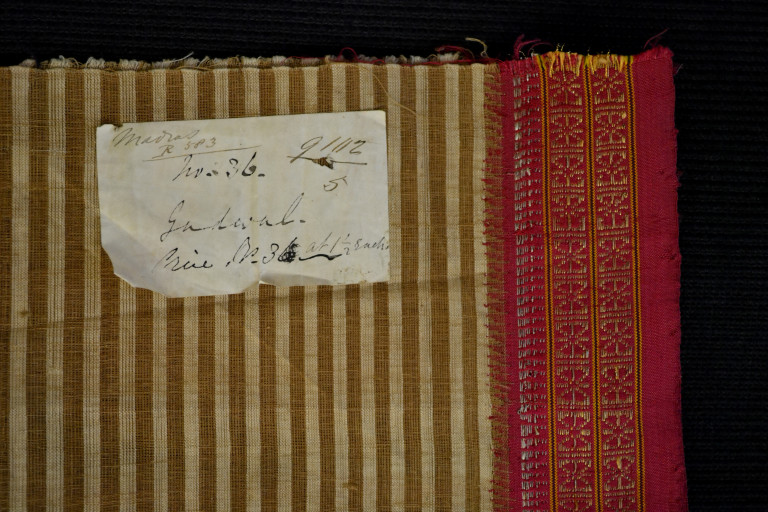 Madras
R 583
No. 36. 9 1112
5
Gadwal.
Price Rs. 36 at 1½ each